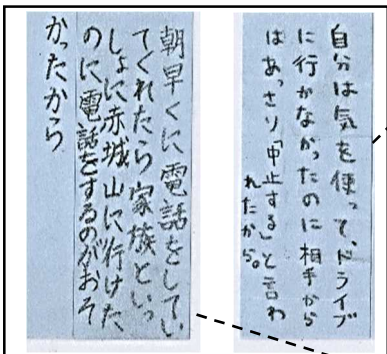 自分は気を使って、ドライブ
に行かなかったのに相手から
はあっさり「中止する」と言わ
れたから。
朝早くに電話をしてい
てくれたら家族といっ
しょに赤城山に行けた
のに電話をするのがおそ
かったから